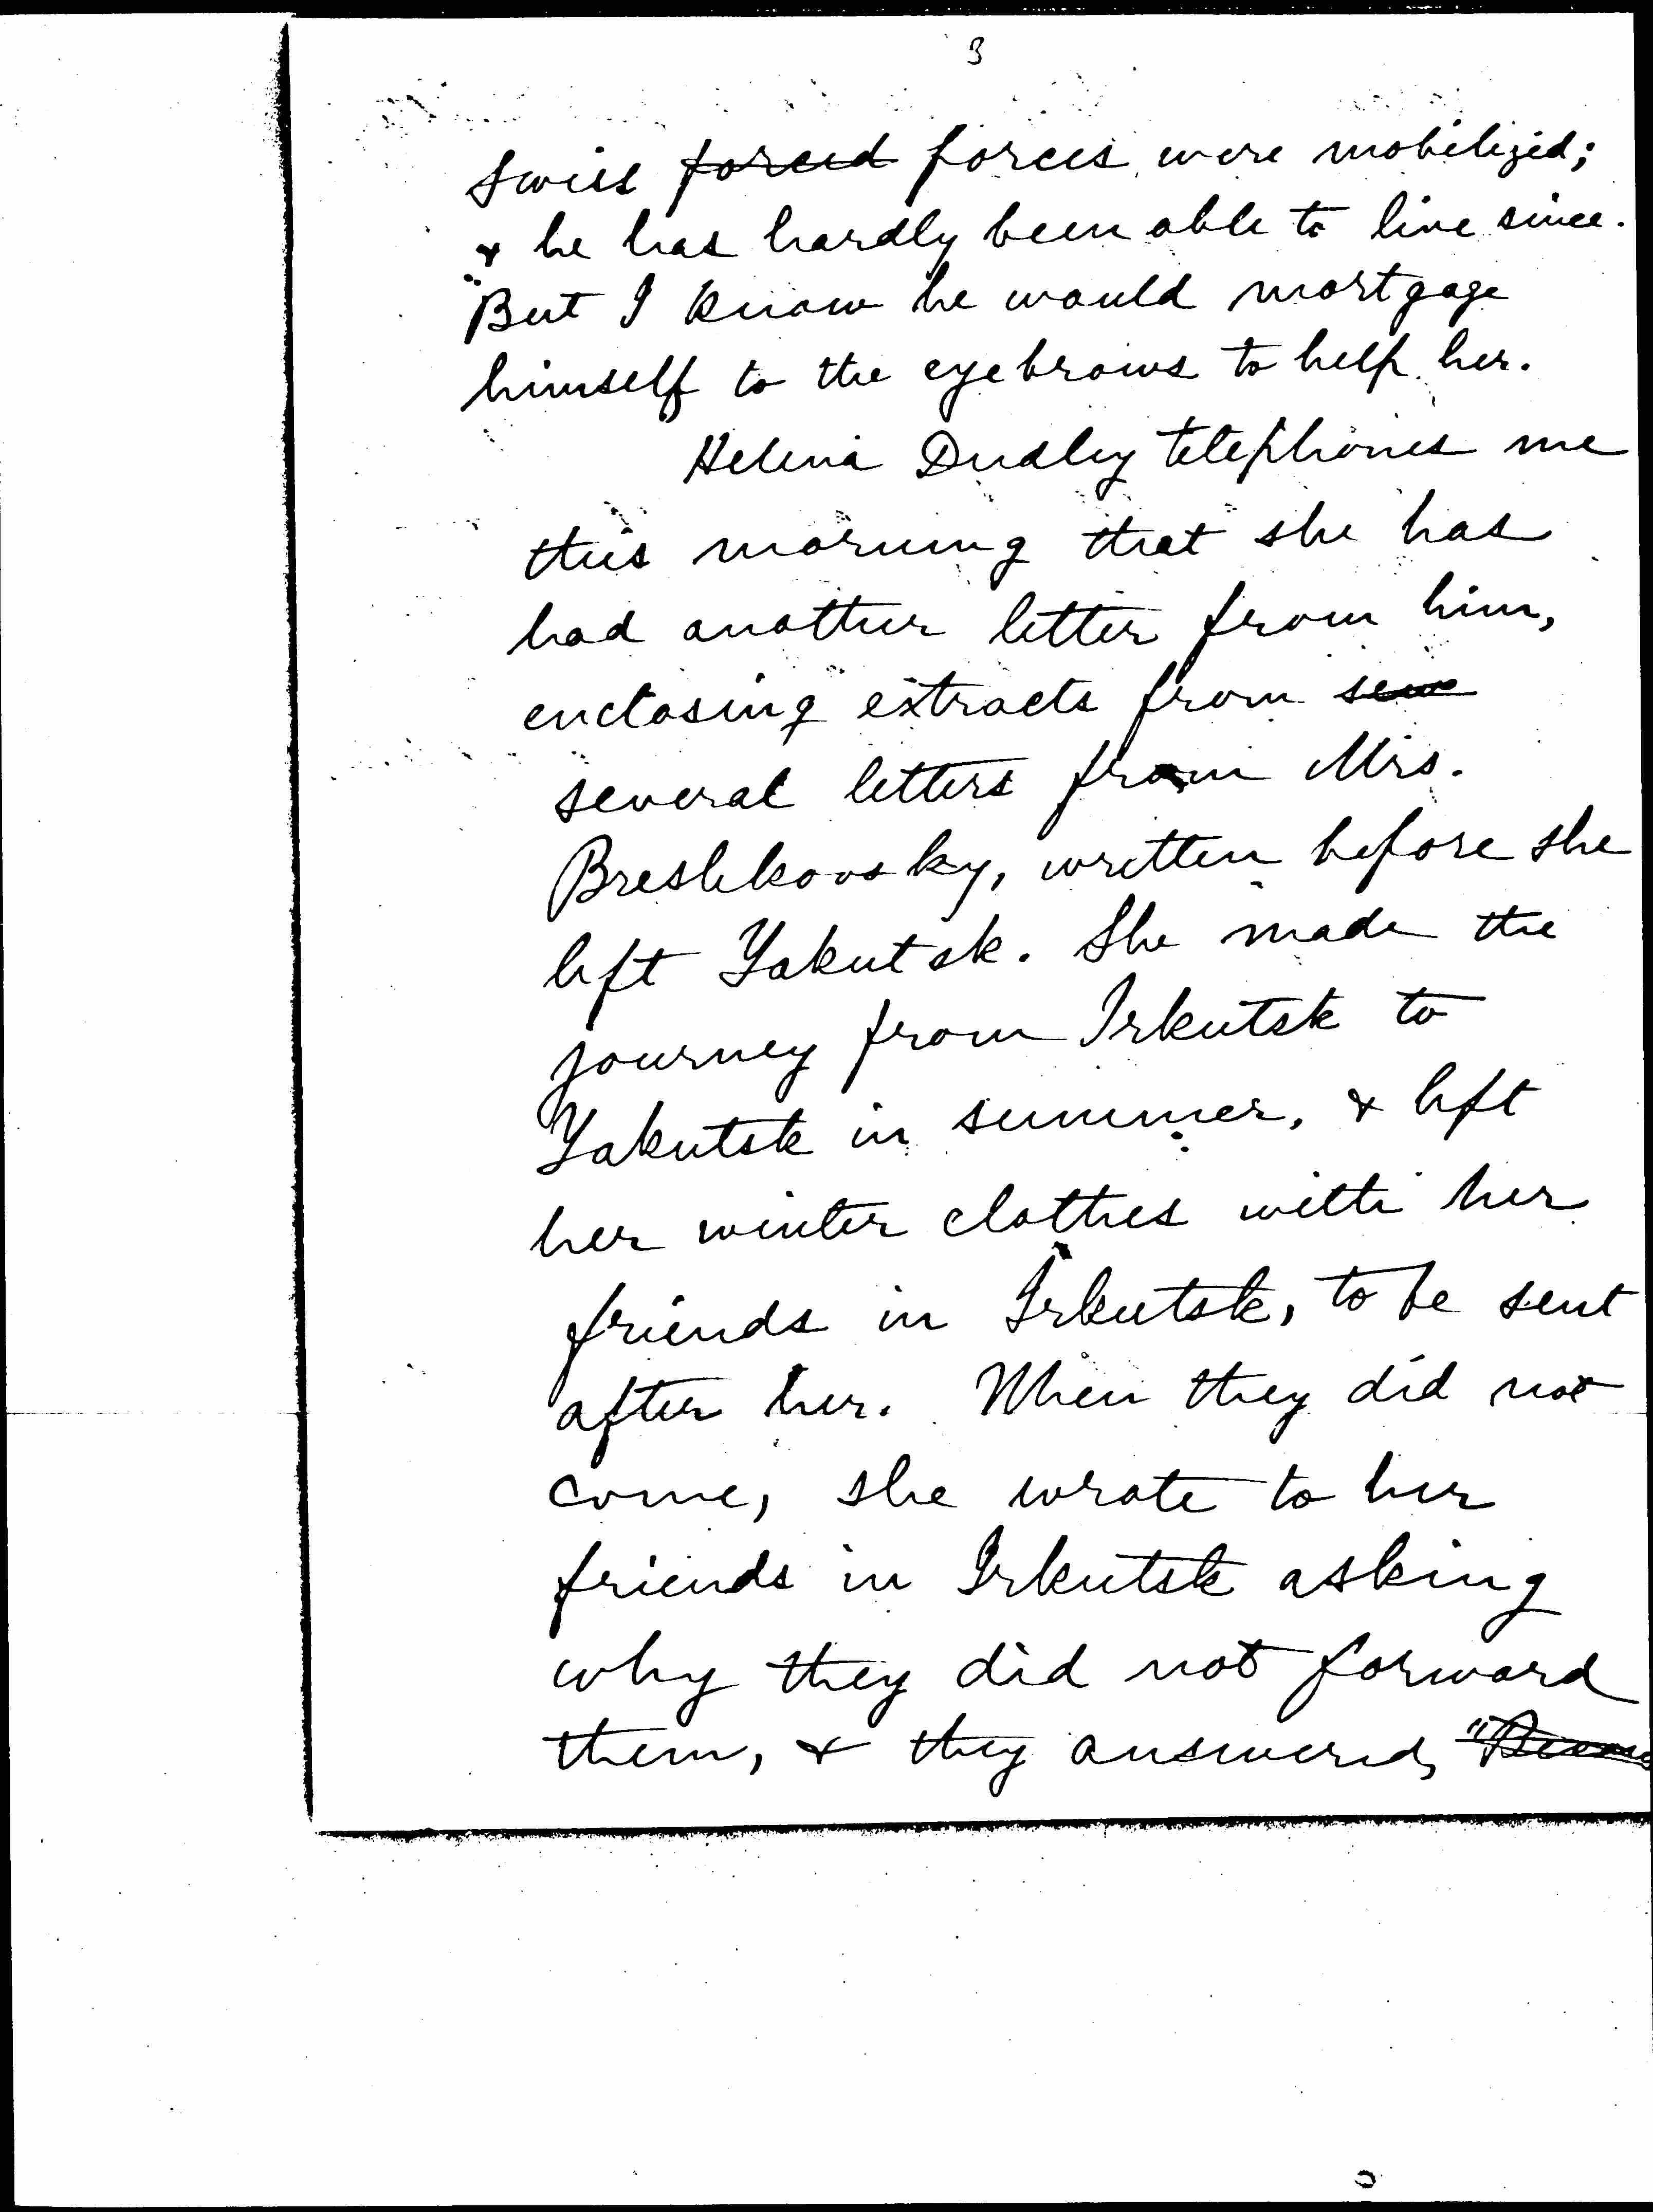 3
Swiss forced forces were mobilized;
& he has hardly been able to live since.
But I know he would mortgage
himself to the eyebrows to help her.
Helena Dudley telephones me
this morning that she has
had another letter from him,
enclosing extracts from
several letters from Mrs.
Breshkovsky, written before she
left Yakutsk. She made the
journey from Irkutsk to
Yakutsk in summer, & left
her winter clothes with her
friends in Irkutsk, to be sent
after her. When they did not
come, she wrote to her
friends in Irkutsk asking
why they did not forward
them, & they answered,